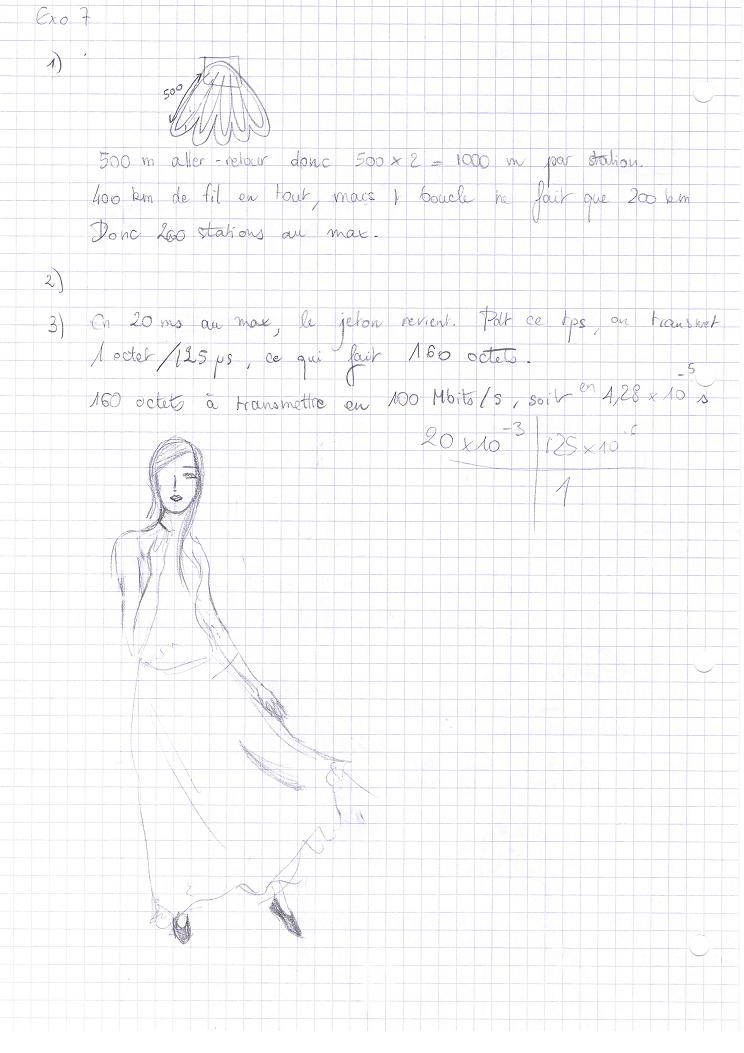 Exo 7
1)
500
500 m aller-retour donc 500 × 2 = 1000 m par station.
400 km de fil en tout, mais 1 boucle ne fait que 200 km
Donc 200 stations au max.
2)
3) En 20 ms au max, le jeton revient. Pdt ce tps, on transmet
1 octet /125 µs, ce qui fait 160 octets.
160 octets à transmettre en 100 Mbits/s, soit en 1,28 × 10⁻⁵ s
20 × 10⁻³ | 125 × 10⁻⁶
1